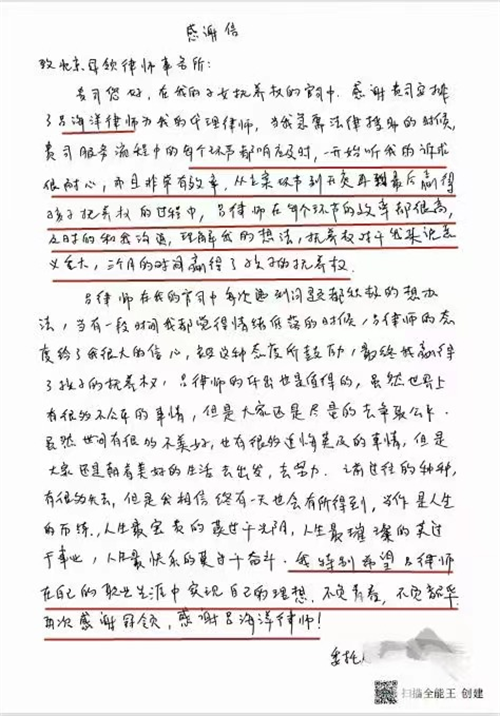 感谢信
致北京冠领律师事务所:
贵司您好,在我的子女抚养权的官司中,感谢贵司安排
了吕海洋律师为我的代理律师,当我急需法律援助的时候,
贵司服务流程中的每个环节都响应及时,一开始听我的诉求
很耐心,而且非常有效率,从立案环节到开庭再到最后赢得
孩子抚养权的过程中,吕律师在每个环节的效率都很高,
及时的和我沟通,理解我的想法,抚养权对于我来说意
义重大,三个月的时间赢得了孩子的抚养权.
吕律师在我的官司中每次遇到问题都积极的想办
法,当有一段时间我都觉得情绪低落的时候,吕律师的态
度给了我很大的信心,被这种态度所鼓励,最终我赢得
了孩子的抚养权,吕律师的付出也是值得的,虽然世界上
有很多不公平的事情,但是大家还是尽量的去争取公平.
虽然世间有很多的不美好,也有很多遗憾莫及的事情,但是
大家还是朝着美好的生活去出发,去努力.过往的种种,
有很多失去,但是我相信终有一天也会有所得到,当作是人生
的历练,人生最宝贵的莫过于光阴,人生最璀璨的莫过
于事业,人生最快乐的莫过于奋斗.我特别希望吕律师
在自己的职业生涯中实现自己的理想.不负青春,不负韶华.
再次感谢冠领,感谢吕海洋律师!
委托人
扫描全能王 创建